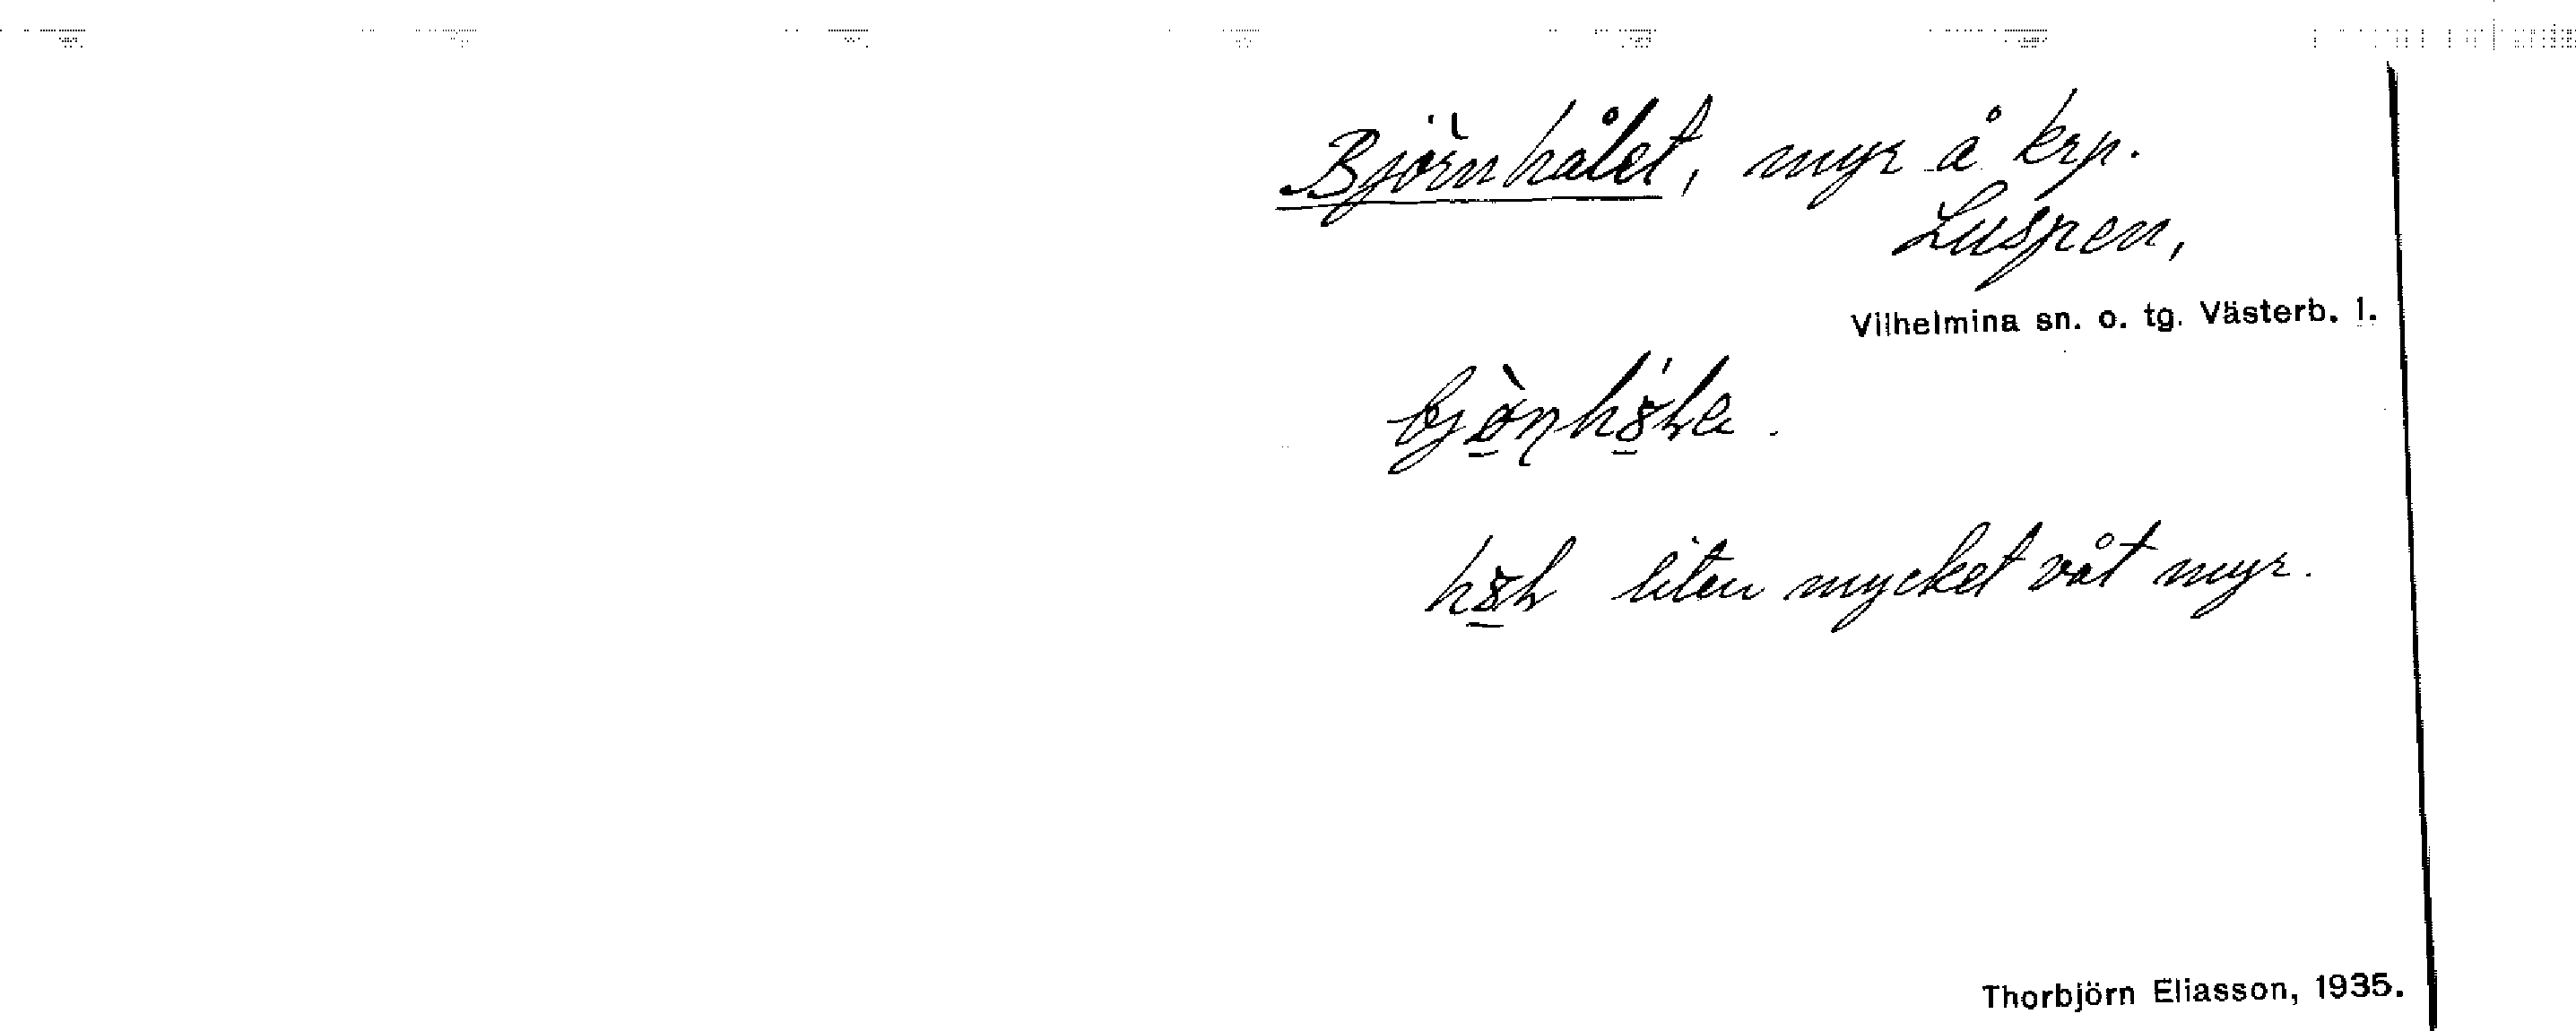 Björnhålet, myr å krp.
Luspen,
Vilhelmina sn. o. tg. Västerb. l.
liten mycket våt myr.
Thorbjörn Eliasson, 1935.